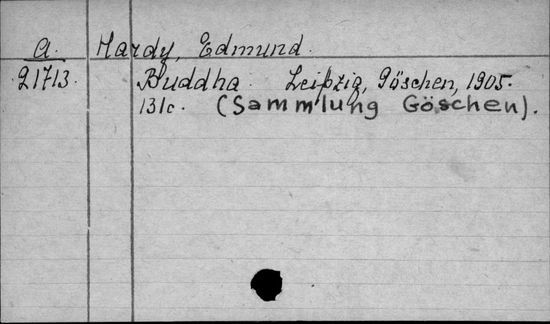 A. Hardy, Edmund.
21713. Buddha. Leipzig, Göschen, 1905.
131c. (Sammlung Göschen).